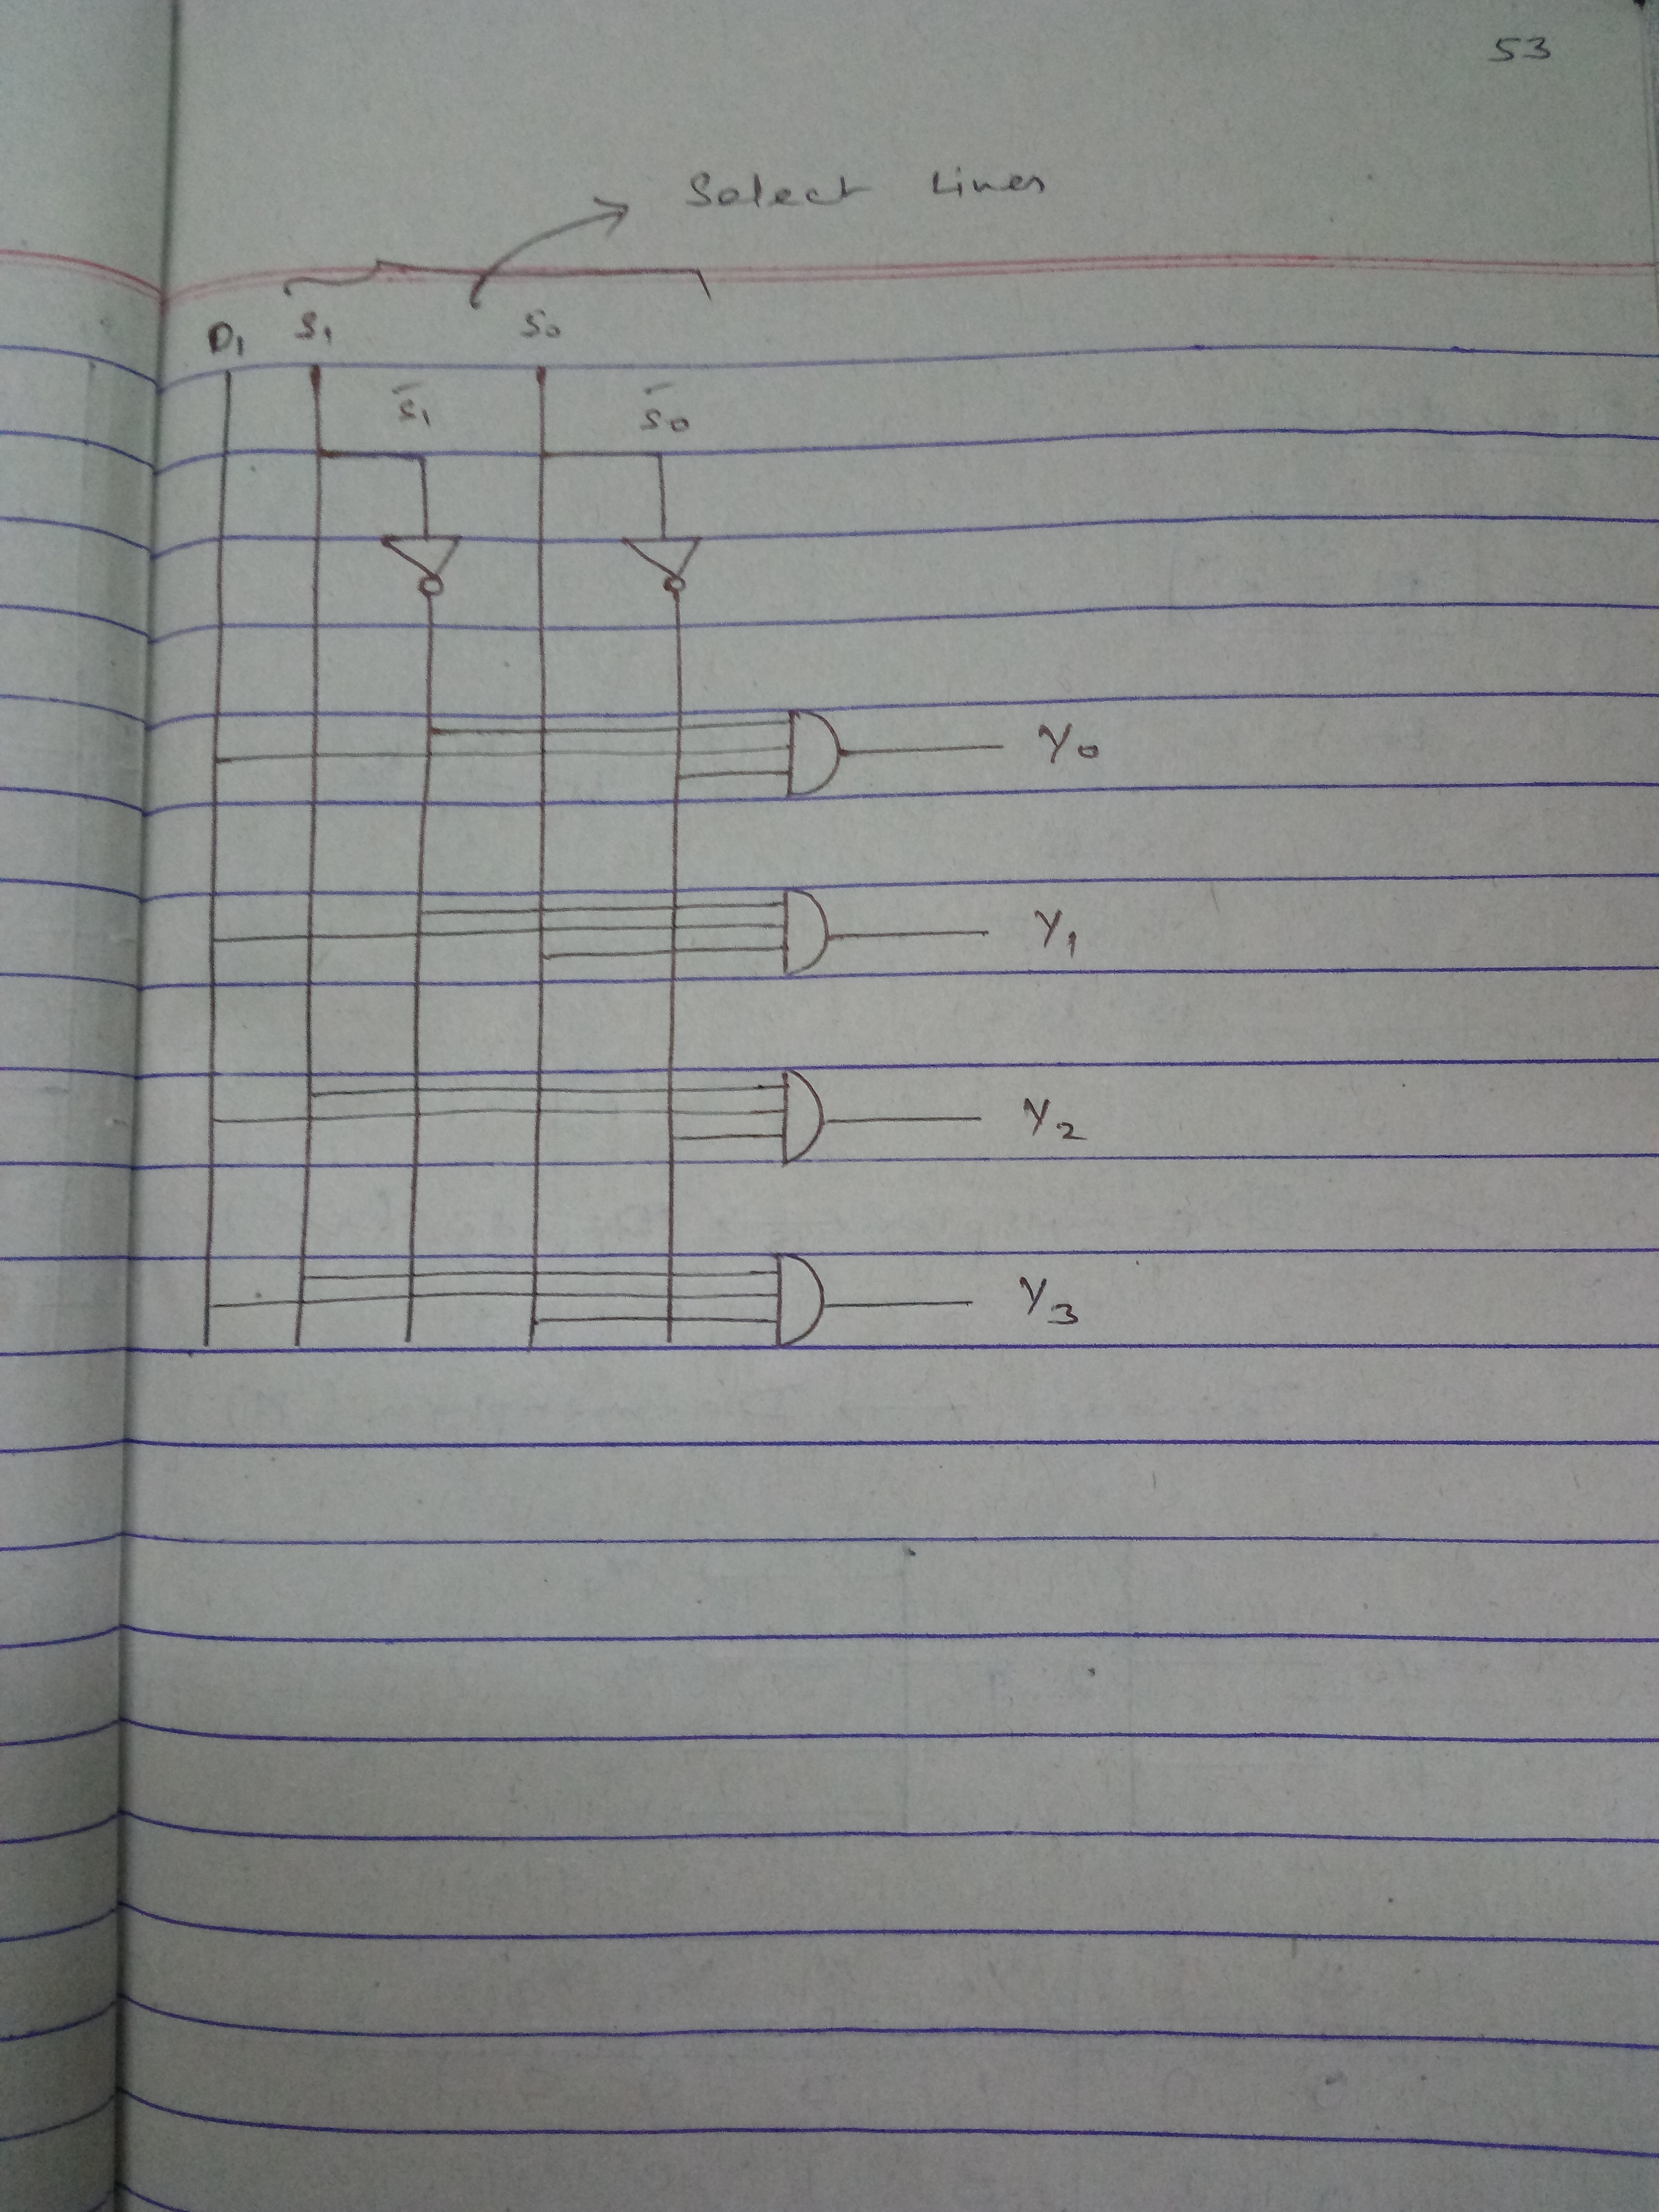 53
Select Lines
D₁ S₁ S₀
S̄₁ S̄₀
Y₀
Y₁
Y₂
Y₃